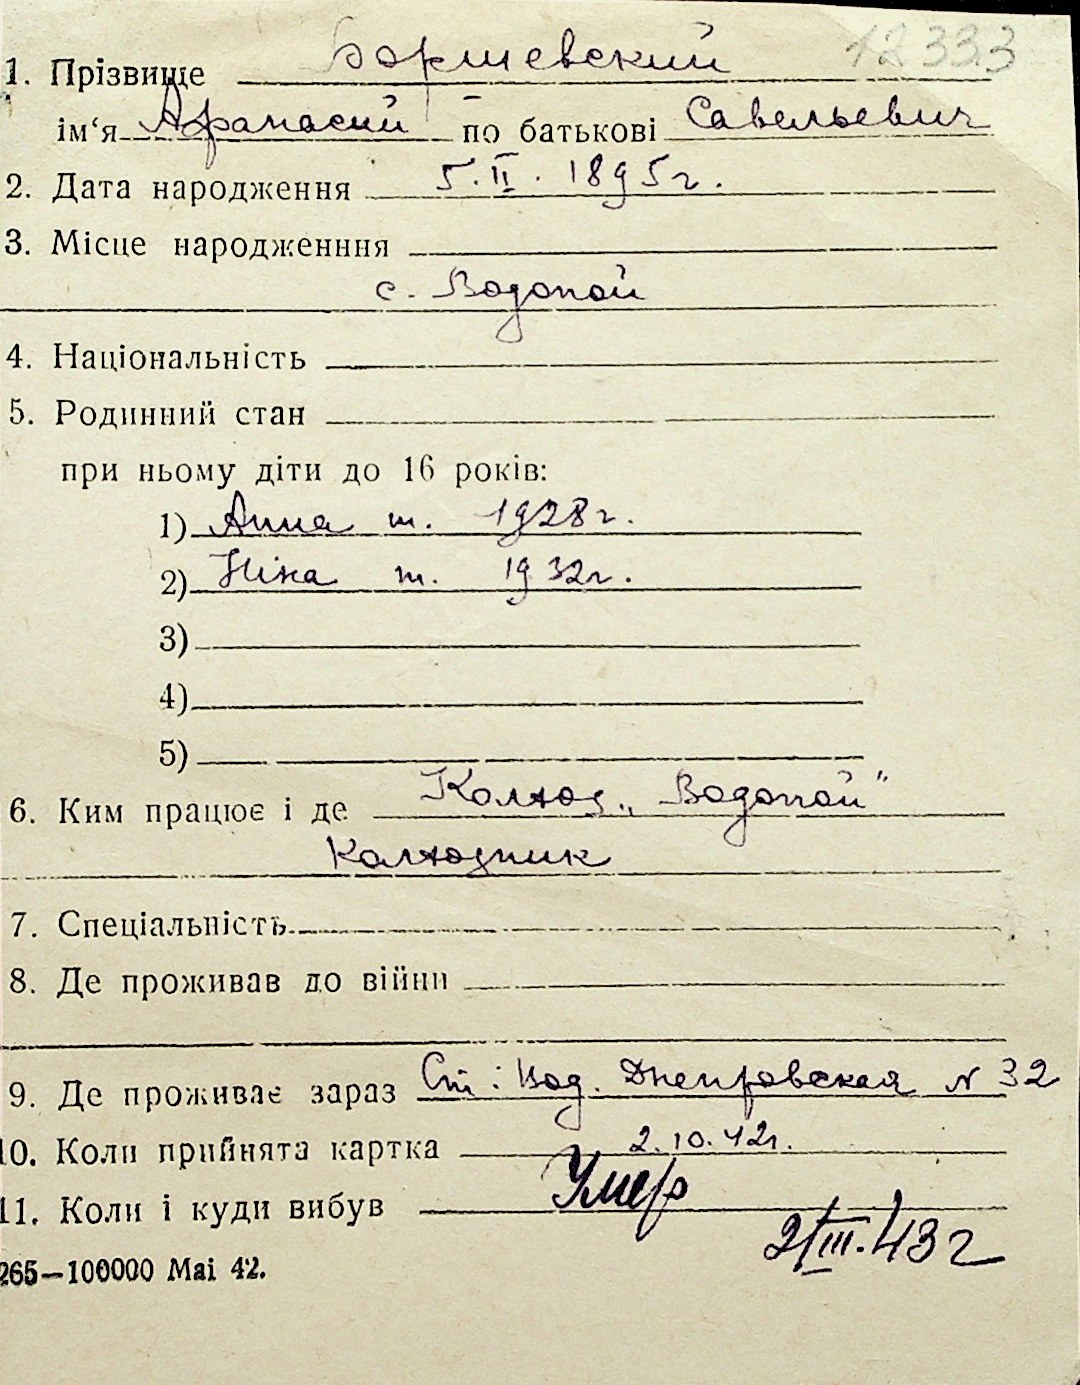 12333
1. Прізвище Боршевский
ім‘я Афанасий по батькові Савельевич
2. Дата народження 5.II.1895г.
3. Місце народженння
с. Водопой
4. Національність
5. Родинний стан
при ньому діти до 16 років:
1) Анна т. 1928г.
2) Ніна т. 1932г.
3)
4)
5)
6. Ким працює і де Колхоз „Водопой"
Колхозник
7. Спеціальність
8. Де проживав до війни
9. Де проживає зараз Ст: Вод. Днепровская N 32
10. Коли прийнята картка 2.10.42г.
11. Коли і куди вибув Умер
2/III.43г
265—100000 Mai 42.